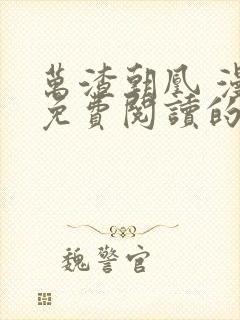 萬渣朝凰 漫
免費閱讀的
魏警官